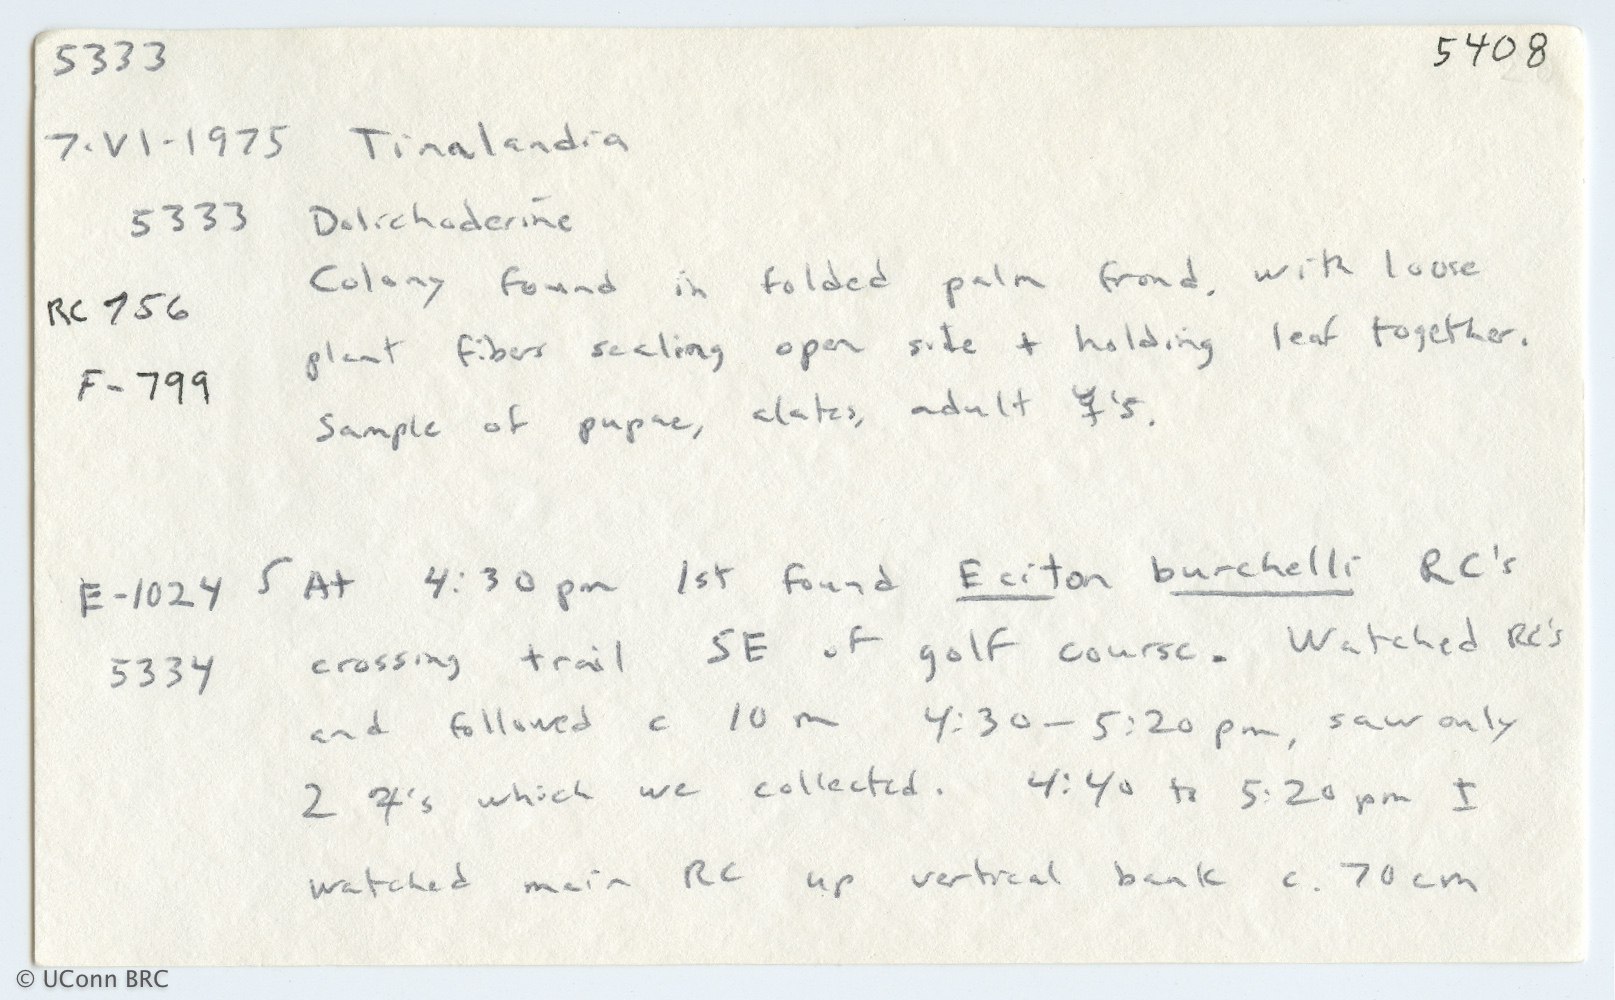 5333 5408
7-VI-1975 Tinalandia
5333 Dolichoderine
Colony found in folded palm frond, with loose
RC 756
plant fibers sealing open side + holding leaf together.
F-799
Sample of pupae, alates, adult ☿'s.
E-1024 At 4:30 pm 1st found Eciton burchelli RC's
5334 crossing trail SE of golf course. Watched RC's
and followed c 10 m 4:30-5:20 pm, saw only
2 ♃'s which we collected. 4:40 to 5:20 pm I
watched main RC up vertical bank c. 70 cm
© UConn BRC